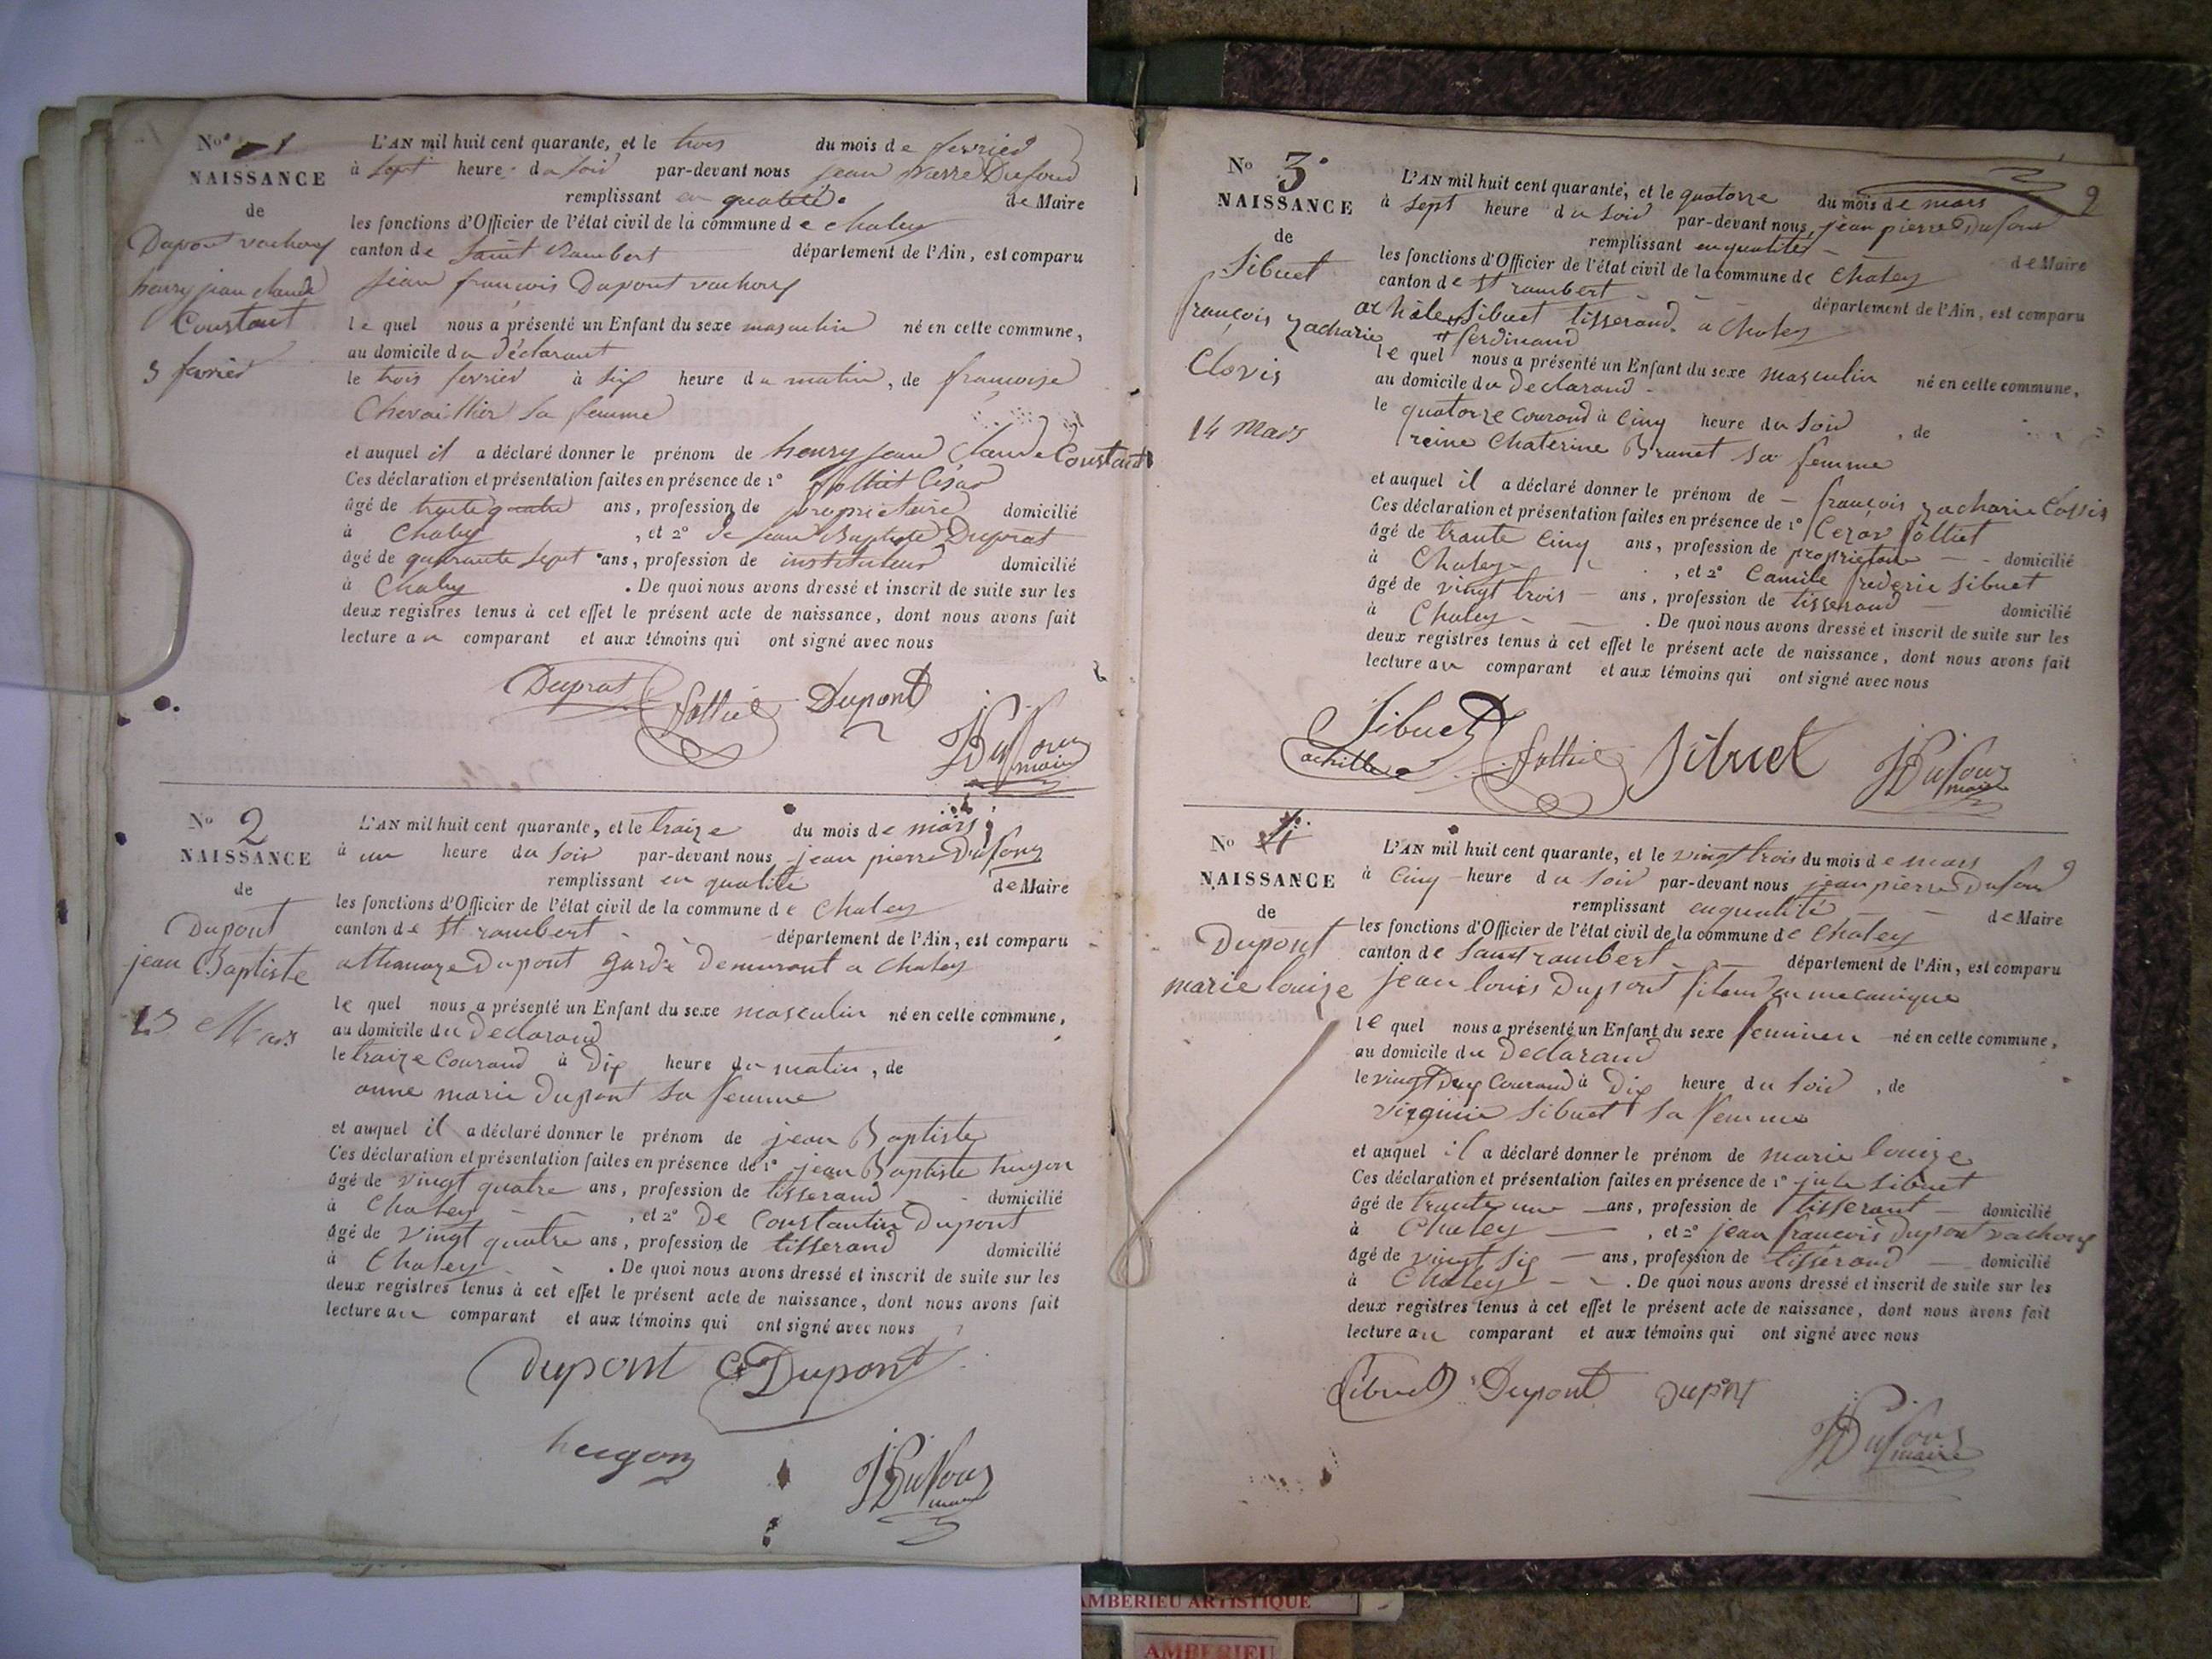 No 1
NAISSANCE
de
Dupont vachoux
henry jean claude
Constant
3 fevrier
L'AN mil huit cent quarante, et le trois du mois de fevrier
à sept heure du soir par-devant nous jean pierre Dufour
remplissant en qualité de Maire
les fonctions d'Officier de l'état civil de la commune de chaley
canton de Saint Rambert département de l'Ain, est comparu
jean françois Dupont vachoux
le quel nous a présenté un Enfant du sexe masculin né en cette commune,
au domicile du déclarant
le trois fevrier à six heure du matin, de françoise
Chevaillier sa femme
et auquel il a déclaré donner le prénom de henry jean Claude Constant
Ces déclaration et présentation faites en présence de 1° folliet César
âgé de trente quatre ans, profession de proprietaire domicilié
à Chaley, et 2° de jean Baptiste Duprat
âgé de quarante sept ans, profession de instituteur domicilié
à Chaley. De quoi nous avons dressé et inscrit de suite sur les
deux registres tenus à cet effet le présent acte de naissance, dont nous avons fait
lecture au comparant et aux témoins qui ont signé avec nous
Duprat folliet Dupont
JP Dufour
maire
No 2
NAISSANCE
de
Dupont
jean Baptiste
13 Mars
L'AN mil huit cent quarante, et le traize du mois de mars
à un heure du soir par-devant nous jean pierre Dufour
remplissant en qualité de Maire
les fonctions d'Officier de l'état civil de la commune de Chaley
canton de st rambert département de l'Ain, est comparu
athanaze Dupont garde demurant a chaley
le quel nous a présenté un Enfant du sexe masculin né en cette commune,
au domicile du Declarand
le traize courand à Dix heure du matin, de
anne marie Dupont sa femme
et auquel il a déclaré donner le prénom de jean Baptiste
Ces déclaration et présentation faites en présence de 1° jean Baptiste hugon
âgé de vingt quatre ans, profession de tisserand domicilié
à Chaley, et 2° De Constantin Dupont
âgé de vingt quatre ans, profession de tisserand domicilié
à Chaley. De quoi nous avons dressé et inscrit de suite sur les
deux registres tenus à cet effet le présent acte de naissance, dont nous avons fait
lecture au comparant et aux témoins qui ont signé avec nous
Dupont C Dupont
hugon JP Dufour
maire
2
No 3°
NAISSANCE
de
Sibuet
françois zacharie
Clovis
14 mars
L'AN mil huit cent quarante, et le quatorze du mois de mars
à sept heure du soir par-devant nous, jean pierre Dufour
remplissant en qualité de Maire
les fonctions d'Officier de l'état civil de la commune de Chaley
canton de st rambert département de l'Ain, est comparu
achile Sibuet tisserand a Chaley
ferdinand
le quel nous a présenté un Enfant du sexe masculin né en cette commune,
au domicile du Declarand
le quatorze courand à cinq heure du soir, de
reine Chaterine Brunet sa femme
et auquel il a déclaré donner le prénom de françois zacharie Clovis
Ces déclaration et présentation faites en présence de 1° Cezar folliet
âgé de trante cinq ans, profession de proprietaire domicilié
à Chaley, et 2° Camile frederic Sibuet
âgé de vingt trois ans, profession de tisserand domicilié
à Chaley. De quoi nous avons dressé et inscrit de suite sur les
deux registres tenus à cet effet le présent acte de naissance, dont nous avons fait
lecture au comparant et aux témoins qui ont signé avec nous
Sibuet
achille folliet Sibuet JP Dufour
maire
No 4
NAISSANCE
de
Dupont
marie louize
L'AN mil huit cent quarante, et le vingt trois du mois de mars
à cinq heure du soir par-devant nous jean pierre Dufour
remplissant en qualité de Maire
les fonctions d'Officier de l'état civil de la commune de Chaley
canton de Saint rambert département de l'Ain, est comparu
jean louis Dupont fileur en mecanique
le quel nous a présenté un Enfant du sexe feminen né en cette commune,
au domicile du Declarand
le vingt Deux Courand à Dix heure du soir, de
virginie Sibuet sa femme
et auquel il a déclaré donner le prénom de marie louize
Ces déclaration et présentation faites en présence de 1° jule Sibuet
âgé de trante un ans, profession de tisserant domicilié
à Chaley, et 2° jean francois Dupont vachoux
âgé de vingt six ans, profession de tisserand domicilié
à Chaley. De quoi nous avons dressé et inscrit de suite sur les
deux registres tenus à cet effet le présent acte de naissance, dont nous avons fait
lecture au comparant et aux témoins qui ont signé avec nous
Sibuet Dupont Dupont
JP Dufour
maire
AMBERIEU ARTISTIQUE
AMBERIEU